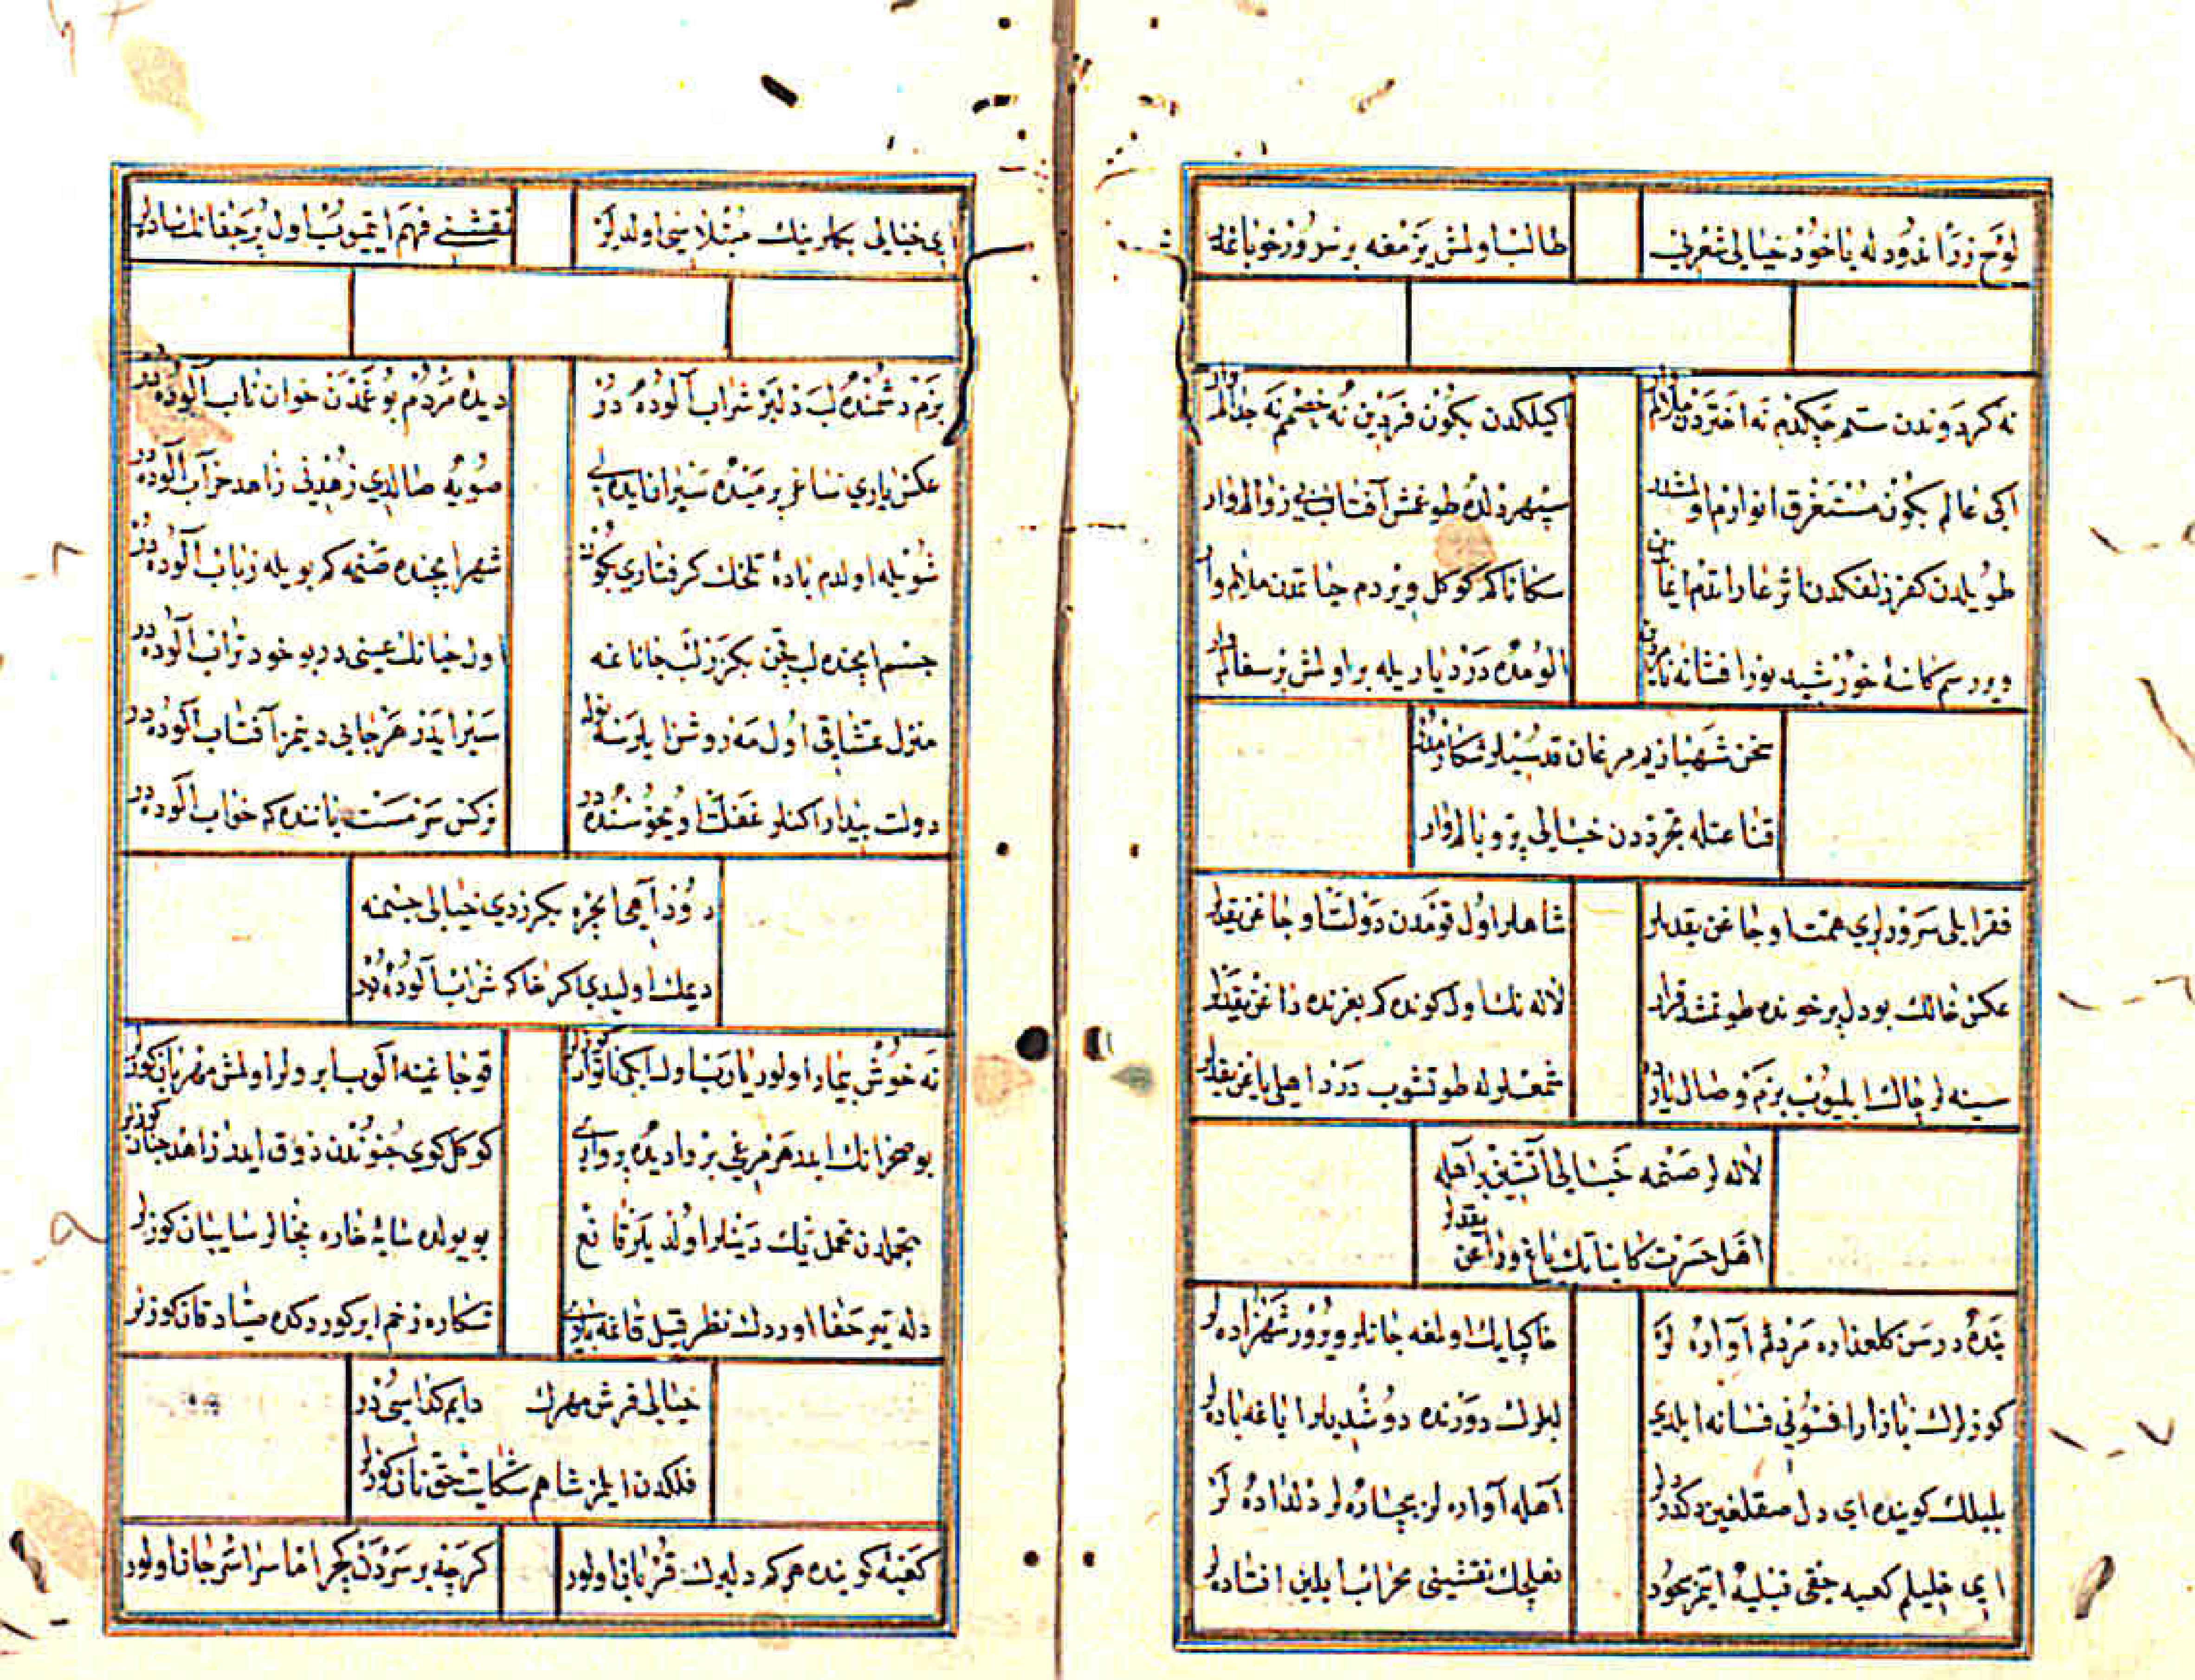 لوح زر اندود له یا خود خیالی شعرنی
طالب اولمش یزمغه بر سرور خوبانمز
نه کردوندن ستم چکدم نه اختردن ملالم وار
اکیلکدن بکون فردین نه خصمم نه جدالم وار
ایکی عالم بکون مستغرق انوارم اولمشدر
سپهر دلده طوغمش آفتاب بی زوالم وار
طویلدن کفر زلفکدن اثر عار ایتدم ایماندن
سکا تا کم کوکل ویردم حیاتمدن ملالم وار
ویررسم کاسهٔ خورشید نور افشانه
المده درد یاریله بر اولمش بر سفالم وار
سخن شهبازیم مرغان قدسیلر شکارمدر
قناعتله تجرددن خیالی پر و بالم وار
فقر ایلی سرورلری همت اوجاغن یقدیلر
شاهلر اول قومدن دولت اوجاغن یقدیلر
عکس خالک بو دل پر خونده طوتمشدر قرار
لاله نک اول کونده کم بغرنده داغن یقدیلر
سینه لر چاک ایلیوب بزم وصال یارده
شمعلرله طوتشوب درد اهلی یاغن یقدیلر
لاله لر صنمه خیالی آتشین بر آهله
اهل حسرت کایناتک باغ و راغن یقدیلر
بنده در سن کلعذاره مردم آواره لر
خاکپایک اولمغه جانلر ویرور شهزاده لر
کوزلرک بازار افسونی فسانه ایلدی
لبلرک دورنده دوشدیلر ایاغه باده لر
بلبلک کوینده ای دل صقلغین دکدر
اهله آواره لر بیچاره لر دلداده لر
ای خلیلم کعبه حقی قبلیه ایتمز سجود
نعلچک نقشینی محراب ایلین افتاده لر
ای خیالی بکلرینک مبتلاسی اولدیلر
نقشنی فهم ایتمیوب اول پر جفا
بزم دشمنده لب دلبر شراب آلوده در
دیده مردم بو غمدن خوان ناب آلوده در
عکس یاری ساغر پر میده سیران ایدەلی
صویه صالدی زهدنی زاهد خراب آلوده در
شویله اولدم بادهٔ تلخک کرفتاری بکون
شهر ایچنده صنمه کم بویله زباب آلوده در
جسم ایچنده لب چقن بکزر لب جانانمه
اول حیاتک عینی در بو خود تراب آلوده در
منزل عشاقی اول مه روشن ایلرسه نوله
سیر ایدر هر جایی دیمز آفتاب آلوده در
دولت بیدار اکنلر غفلت اویخوسنده در
نرکس سرمست یاننده کم خواب آلوده در
دود آهم ایچره بکزردی خیالی جسممه
دیمک اولیدی اکر خاکه شراب آلوده در
نه خوش بیمار اولور یا رب اول ایکی ناتوان کوزلر
قوجاغینه الوب یا بر ولر اولمش مهربان کوزلر
بو صحرانک ایدر هر مرغی بر وادیده پروازی
کوکل کوی جنوندن ذوق ایدر زاهد جنان کوزلر
تجملدن تحمل تک دینلر اولدیلر قانع
بو یولده سایهٔ خاره نجالر سایبان کوزلر
دله تیر جفا اوردک نظر قیل قانمه باری
شکاره زخم ایرکوردکده صیاد قان کوزلر
خیالی فرش مهرک دایم کداسی در
فلکدن ایلمز شاهم شکایت حق نان کوزلر
کعبهٔ کوینده هر کم دلبرک قربانی اولور
کرچه بر سردن کچر اما سراسر جان اولور